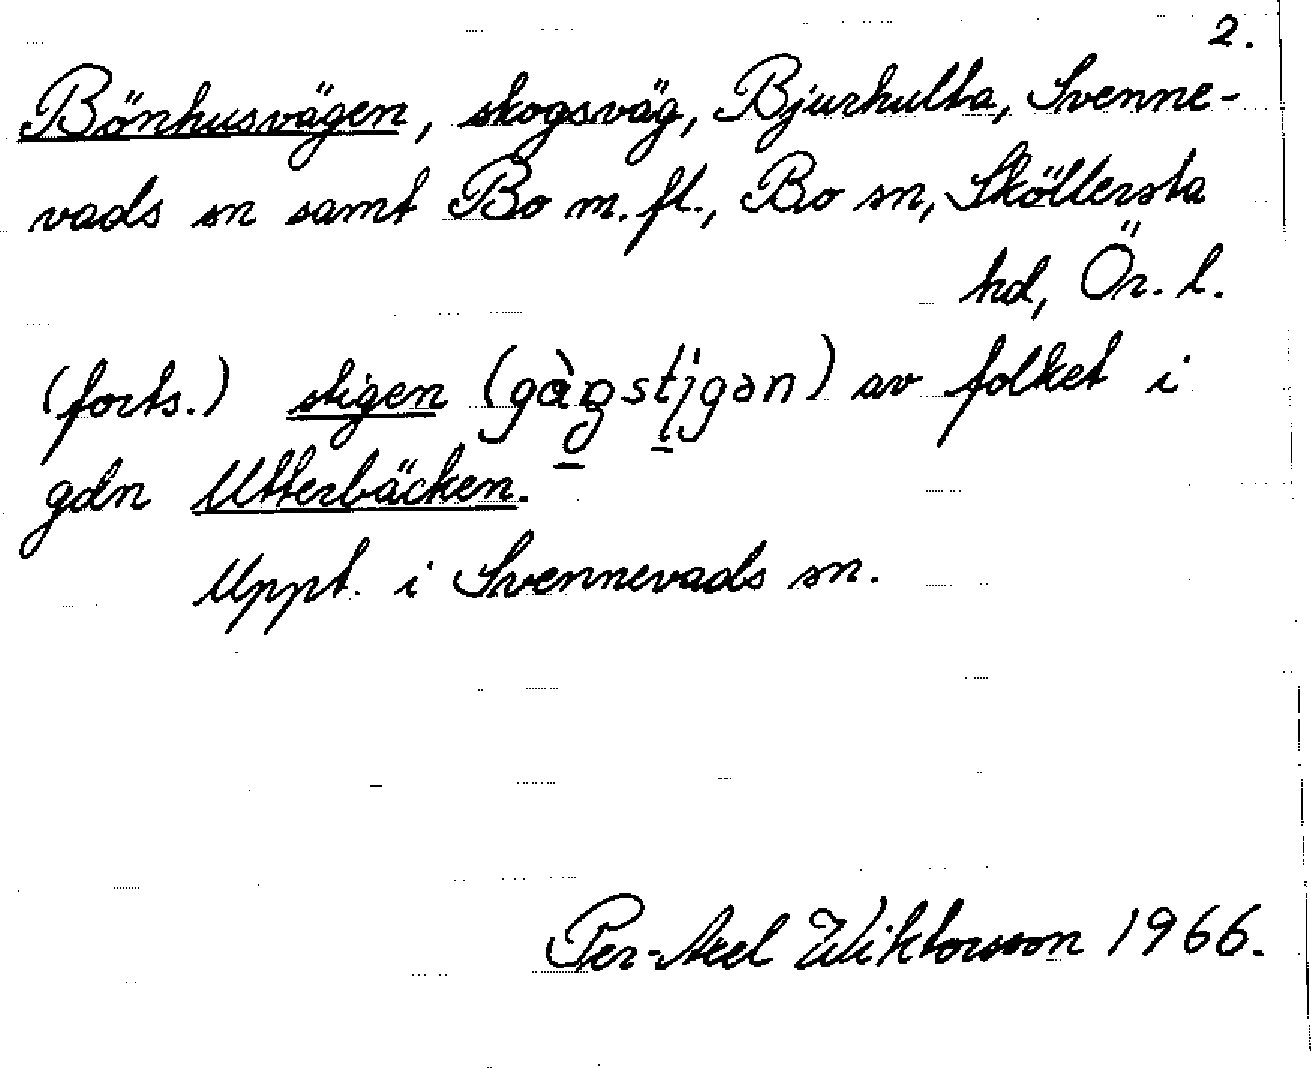 2.
Bönhusvägen, skogsväg, Bjurhulta, Svenne-
vads sn samt Bo m.fl., Bo sn, Sköllersta
hd, Ör. l.
(forts.) stigen (gàŋstiɡən) av folket i
gdn Utterbäcken.
Uppt. i Svennevads sn.
Per-Axel Wiktorsson 1966.